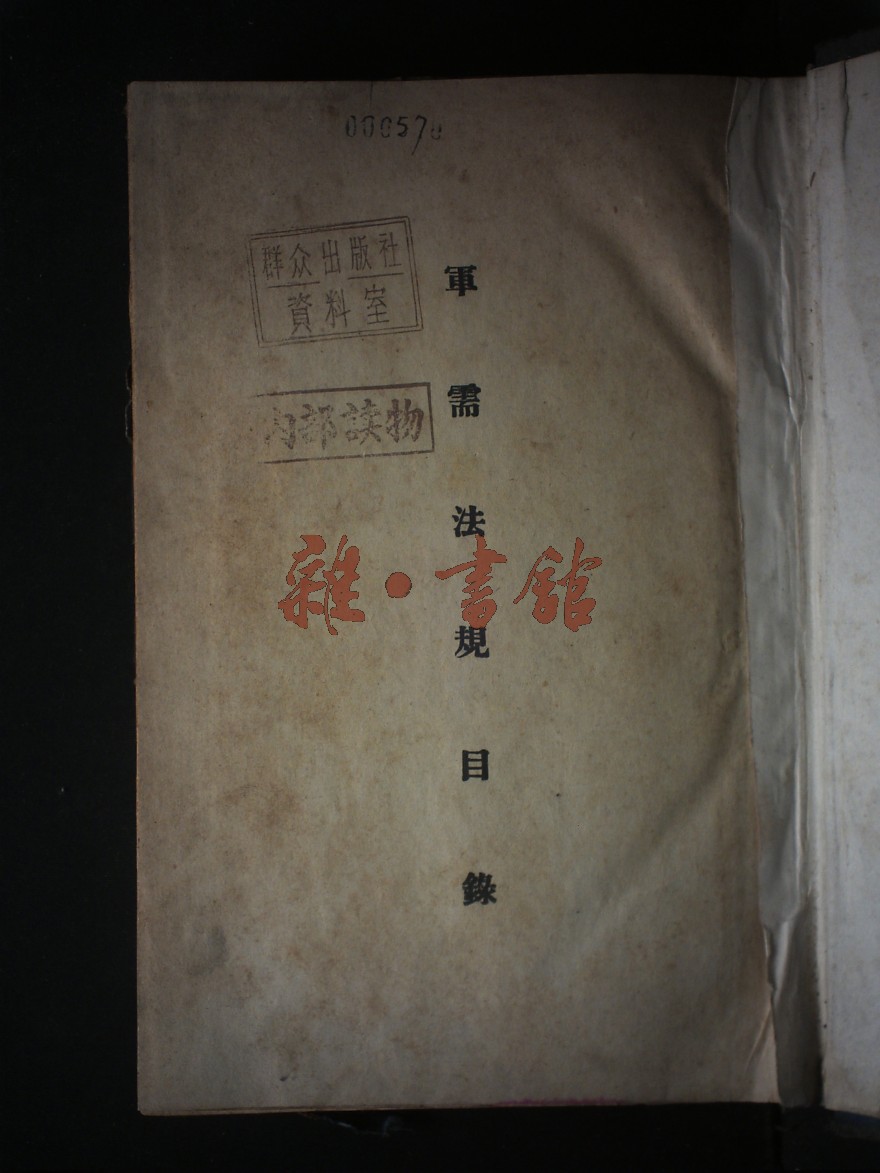 000570
群众出版社
資料室
内部读物
軍需法規目錄
雜·書館